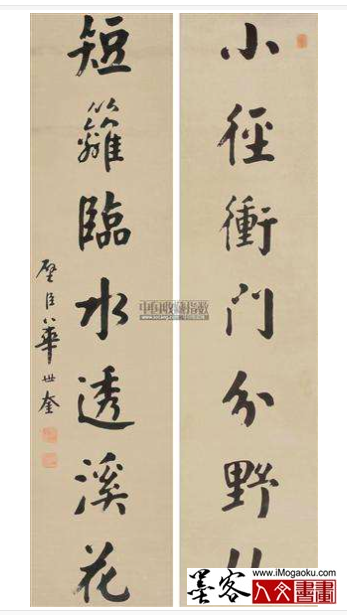 小徑衝門分野
短籬臨水透溪花
璧臣華世奎
中国收藏指数
墨客
www.iMogaoku.com
人文書畫